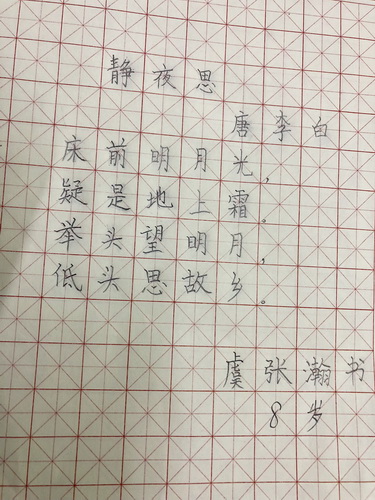 静夜思
唐李白
床前明月光，
疑是地上霜。
举头望明月，
低头思故乡。
虞张瀚书
8岁